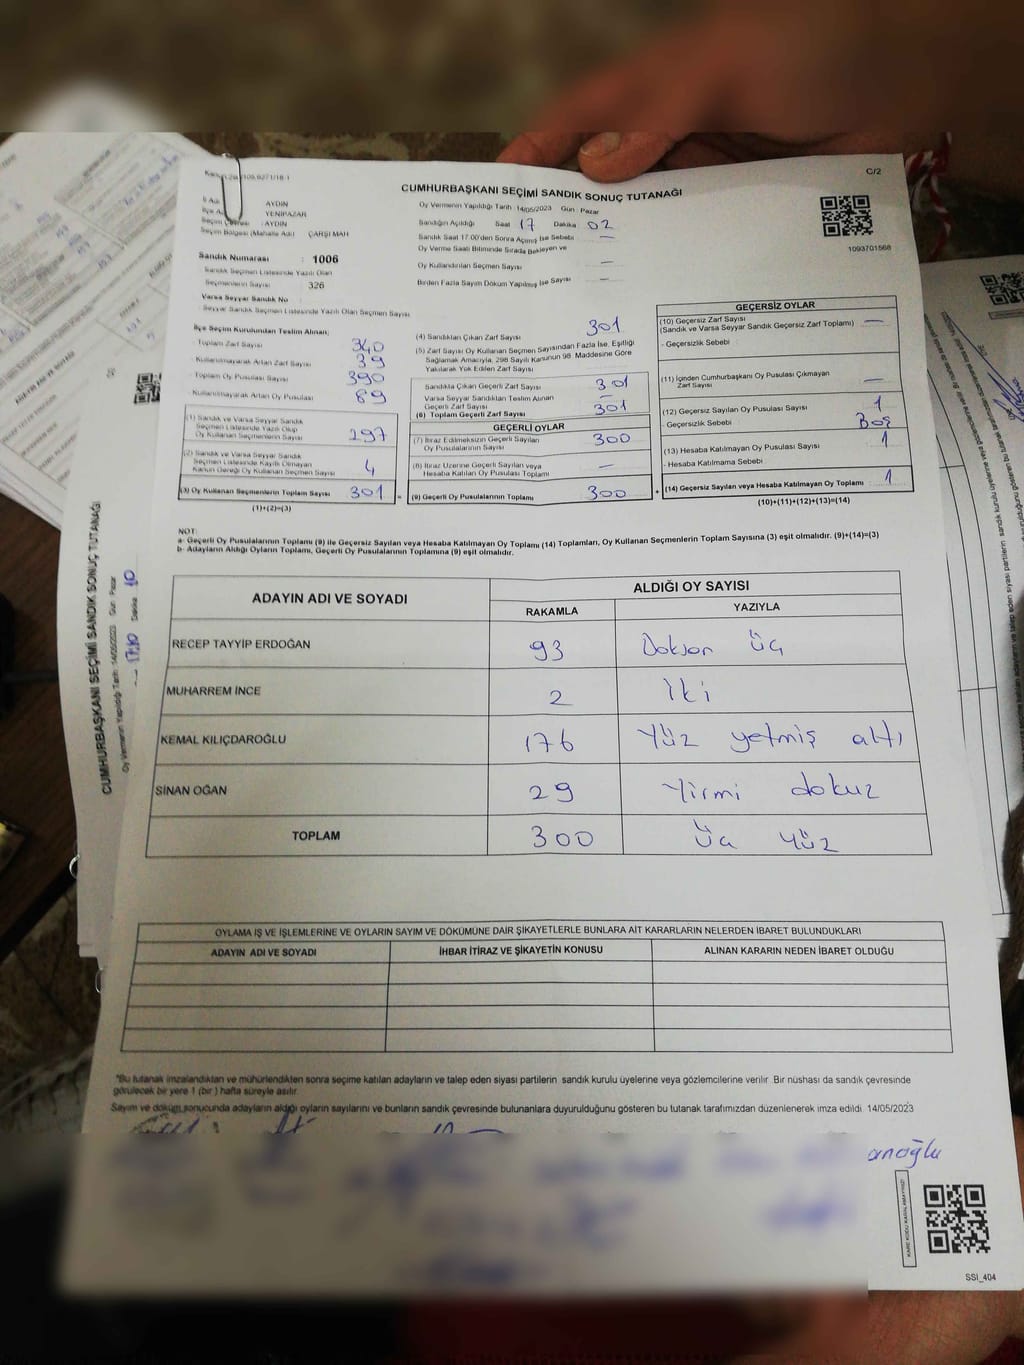 C/2
CUMHURBAŞKANI SEÇİMİ SANDIK SONUÇ TUTANAĞI
Oy Vermenin Yapıldığı Tarih :14/05/2023 Gün : Pazar
İl Adı AYDIN
İlçe Adı YENİPAZAR
Seçim Çevresi : AYDIN
Seçim Bölgesi (Mahalle Adı) ÇARŞI MAH
Sandık Numarası : 1006
Sandık Seçmen Listesinde Yazılı Olan
Seçmenlerin Sayısı 326
Varsa Seyyar Sandık No
Seyyar Sandık Seçmen Listesinde Yazılı Olan Seçmen Sayısı
Sandığın Açıldığı Saat 17 Dakika 02
Sandık Saat 17.00'den Sonra Açılmış İse Sebebi —
Oy Verme Saati Bitiminde Sırada Bekleyen ve
Oy Kullandırılan Seçmen Sayısı —
Birden Fazla Sayım Döküm Yapılmış İse Sayısı —
1093701568
İlçe Seçim Kurulundan Teslim Alınan;
Toplam Zarf Sayısı 340
Kullanılmayarak Artan Zarf Sayısı 39
Toplam Oy Pusulası Sayısı 390
Kullanılmayarak Artan Oy Pusulası 89
(1) Sandık ve Varsa Seyyar Sandık
Seçmen Listesinde Yazılı Olup
Oy Kullanan Seçmenlerin Sayısı 297
(2) Sandık ve Varsa Seyyar Sandık
Seçmen Listesinde Kayıtlı Olmayan
Kanun Gereği Oy Kullanan Seçmen Sayısı 4
(3) Oy Kullanan Seçmenlerin Toplam Sayısı 301 =
(1)+(2)=(3)
(4) Sandıktan Çıkan Zarf Sayısı 301
(5) Zarf Sayısı Oy Kullanan Seçmen Sayısından Fazla İse, Eşitliği
Sağlamak Amacıyla, 298 Sayılı Kanunun 98. Maddesine Göre
Yakılarak Yok Edilen Zarf Sayısı
Sandıkta Çıkan Geçerli Zarf Sayısı 301
Varsa Seyyar Sandıktan Teslim Alınan
Geçerli Zarf Sayısı —
(6) Toplam Geçerli Zarf Sayısı 301
GEÇERLİ OYLAR
(7) İtiraz Edilmeksizin Geçerli Sayılan
Oy Pusulalarının Sayısı 300
(8) İtiraz Üzerine Geçerli Sayılan veya
Hesaba Katılan Oy Pusulası Sayısı —
(9) Geçerli Oy Pusulalarının Toplamı 300 +
GEÇERSİZ OYLAR
(10) Geçersiz Zarf Sayısı
(Sandık ve Varsa Seyyar Sandık Geçersiz Zarf Toplamı) —
- Geçersizlik Sebebi
(11) İçinden Cumhurbaşkanı Oy Pusulası Çıkmayan
Zarf Sayısı —
(12) Geçersiz Sayılan Oy Pusulası Sayısı 1
- Geçersizlik Sebebi Boş
(13) Hesaba Katılmayan Oy Pusulası Sayısı 1
- Hesaba Katılmama Sebebi
(14) Geçersiz Sayılan veya Hesaba Katılmayan Oy Toplamı : 1
(10)+(11)+(12)+(13)=(14)
NOT:
a- Geçerli Oy Pusulalarının Toplamı (9) ile Geçersiz Sayılan veya Hesaba Katılmayan Oy Toplamı (14) Toplamları, Oy Kullanan Seçmenlerin Toplam Sayısına (3) eşit olmalıdır. (9)+(14)=(3)
b- Adayların Aldığı Oyların Toplamı, Geçerli Oy Pusulalarının Toplamına (9) eşit olmalıdır.
ADAYIN ADI VE SOYADI ALDIĞI OY SAYISI
RAKAMLA YAZIYLA
RECEP TAYYİP ERDOĞAN 93 Doksan üç
MUHARREM İNCE 2 iki
KEMAL KILIÇDAROĞLU 176 Yüz yetmiş altı
SİNAN OĞAN 29 Yirmi dokuz
TOPLAM 300 Üç yüz
OYLAMA İŞ VE İŞLEMLERİNE VE OYLARIN SAYIM VE DÖKÜMÜNE DAİR ŞİKAYETLERLE BUNLARA AİT KARARLARIN NELERDEN İBARET BULUNDUKLARI
ADAYIN ADI VE SOYADI İHBAR İTİRAZ VE ŞİKAYETİN KONUSU ALINAN KARARIN NEDEN İBARET OLDUĞU
*Bu tutanak imzalandıktan ve mühürlendikten sonra seçime katılan adayların ve talep eden siyasi partilerin sandık kurulu üyelerine veya gözlemcilerine verilir. Bir nüshası da sandık çevresinde
görülecek bir yere 1 (bir ) hafta süreyle asılır.
Sayım ve döküm sonucunda adayların aldığı oyların sayılarını ve bunların sandık çevresinde bulunanlara duyurulduğunu gösteren bu tutanak tarafımızdan düzenlenerek imza edildi. 14/05/2023
KARE KODU KARALAMAYINIZ!
SSI_404
CUMHURBAŞKANI SEÇİMİ SANDIK SONUÇ TUTANAĞI
Oy Vermenin Yapıldığı Tarih :14/05/2023 Gün : Pazar
17:10 Dakika 10